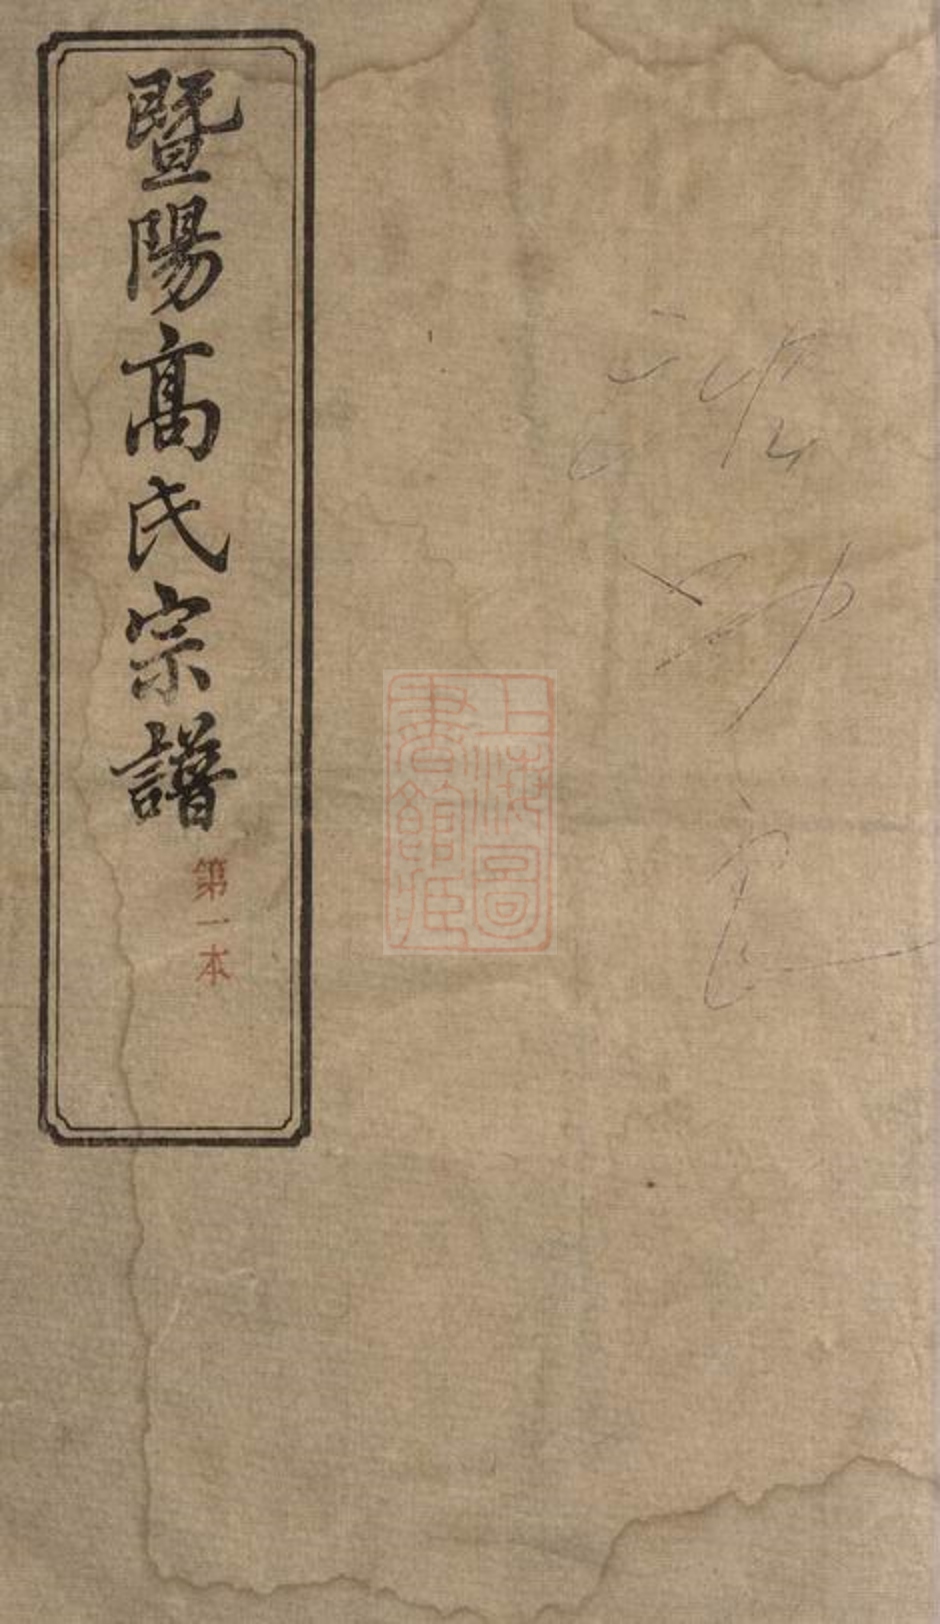 暨陽高氏宗譜
第一本
上海圖
書館藏